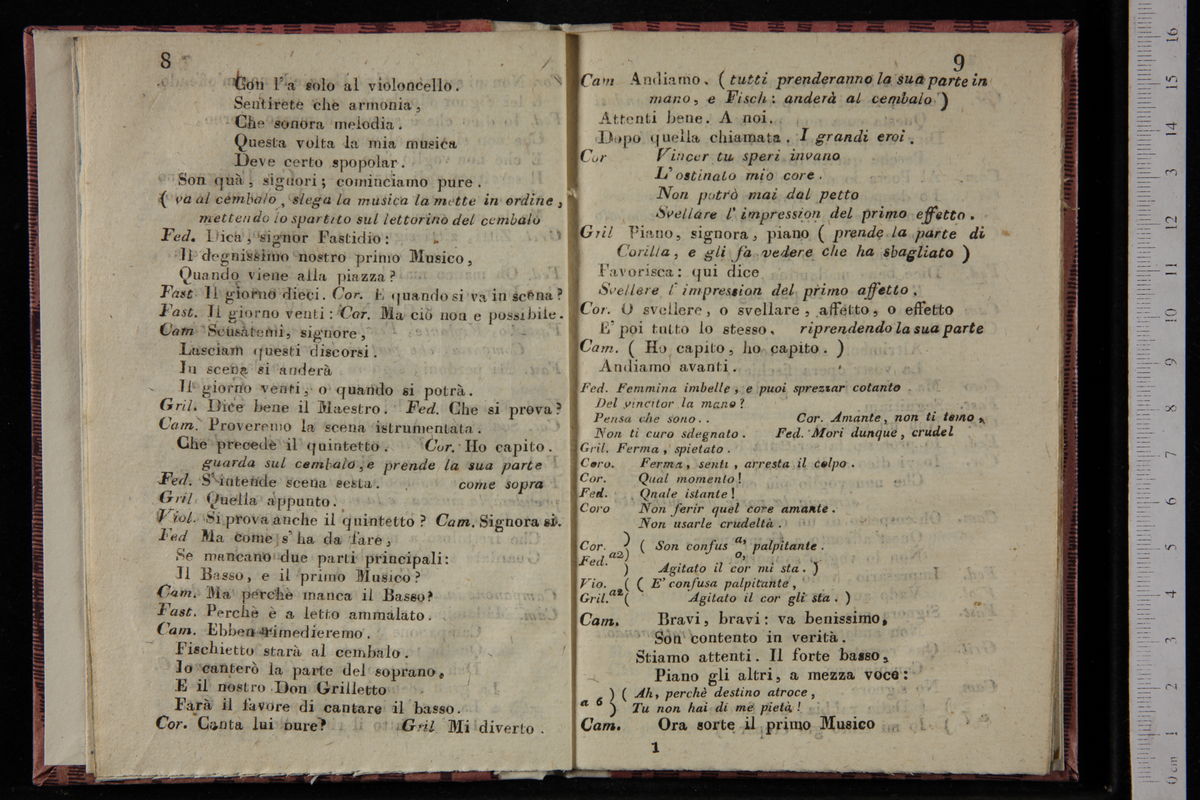 8
Con l'a solo al violoncello.
Sentirete che armonia,
Che sonora melodia.
Questa volta la mia musica
Deve certo spopolar.
Son quà, signori; cominciamo pure.
( va al cembalo, slega la musica la mette in ordine,
mettendo lo spartito sul lettorino del cembalo
Fed. Dica, signor Fastidio:
Il degnissimo nostro primo Musico,
Quando viene alla piazza?
Fast. Il giorno dieci. Cor. E quando si va in scena?
Fast. Il giorno venti: Cor. Ma ciò non e possibile.
Cam Scusatemi, signore,
Lasciam questi discorsi.
In scena si anderà
Il giorno venti, o quando si potrà.
Gril. Dice bene il Maestro. Fed. Che si prova?
Cam. Proveremo la scena istrumentata.
Che precede il quintetto. Cor. Ho capito.
guarda sul cembalo, e prende la sua parte
Fed. S'intende scena sesta. come sopra
Gril Quella appunto.
Viol. Si prova anche il quintetto? Cam. Signora sì.
Fed Ma come s'ha da fare,
Se mancano due parti principali:
Il Basso, e il primo Musico?
Cam. Ma perchè manca il Basso?
Fast. Perchè è a letto ammalato.
Cam. Ebben rimedieremo.
Fischietto starà al cembalo.
Io canterò la parte del soprano,
E il nostro Don Grilletto
Farà il favore di cantare il basso.
Cor. Canta lui pure? Gril Mi diverto.
9
Cam Andiamo. ( tutti prenderanno la sua parte in
mano, e Fisch: anderà al cembalo )
Attenti bene. A noi.
Dopo quella chiamata. I grandi eroi.
Cor Vincer tu speri invano
L'ostinato mio core.
Non potrò mai dal petto
Svellare l'impression del primo effetto.
Gril Piano, signora, piano ( prende la parte di
Corilla, e gli fa vedere che ha sbagliato )
Favorisca: qui dice
Svellere l'impression del primo affetto.
Cor. O svellere, o svellare, affetto, o effetto
E' poi tutto lo stesso. riprendendo la sua parte
Cam. ( Ho capito, ho capito. )
Andiamo avanti.
Fed. Femmina imbelle, e puoi sprezzar cotanto
Del vincitor la mano?
Pensa che sono.. Cor. Amante, non ti temo,
Non ti curo sdegnato. Fed. Mori dunque, crudel
Gril. Ferma, spietato.
Coro. Ferma, senti, arresta il colpo.
Cor. Qual momento!
Fed. Qnale istante!
Coro Non ferir quel core amante.
Non usarle crudeltà.
Cor. ) ( Son confus a, palpitante.
Fed. a2) o,
) Agitato il cor mi sta. )
Vio. ( ( E' confusa palpitante,
Gril. a2 ( Agitato il cor gli sta. )
Cam. Bravi, bravi: va benissimo,
Son contento in verità.
Stiamo attenti. Il forte basso,
Piano gli altri, a mezza voce:
a 6 ) ( Ah, perchè destino atroce,
) Tu non hai di me pietà!
Cam. Ora sorte il primo Musico
1
0 cm 1 2 3 4 5 6 7 8 9 10 11 12 13 14 15 16